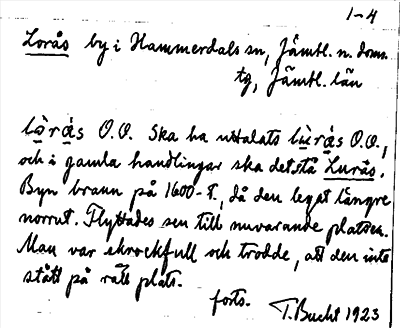 1-4
Lorås by i Hammerdals sn, Jämtl. n. doms.
tg, Jämtl. län
O.O. Ska ha uttalats O.O.,
och i gamla handlingar ska det stå Lurås.
Byn brann på 1600-t., då den legat längre
norrut. Flyttades sen till nuvarande platsen.
Man var skrockfull och trodde, att den inte
stått på rätt plats.
forts. T. Bucht 1923